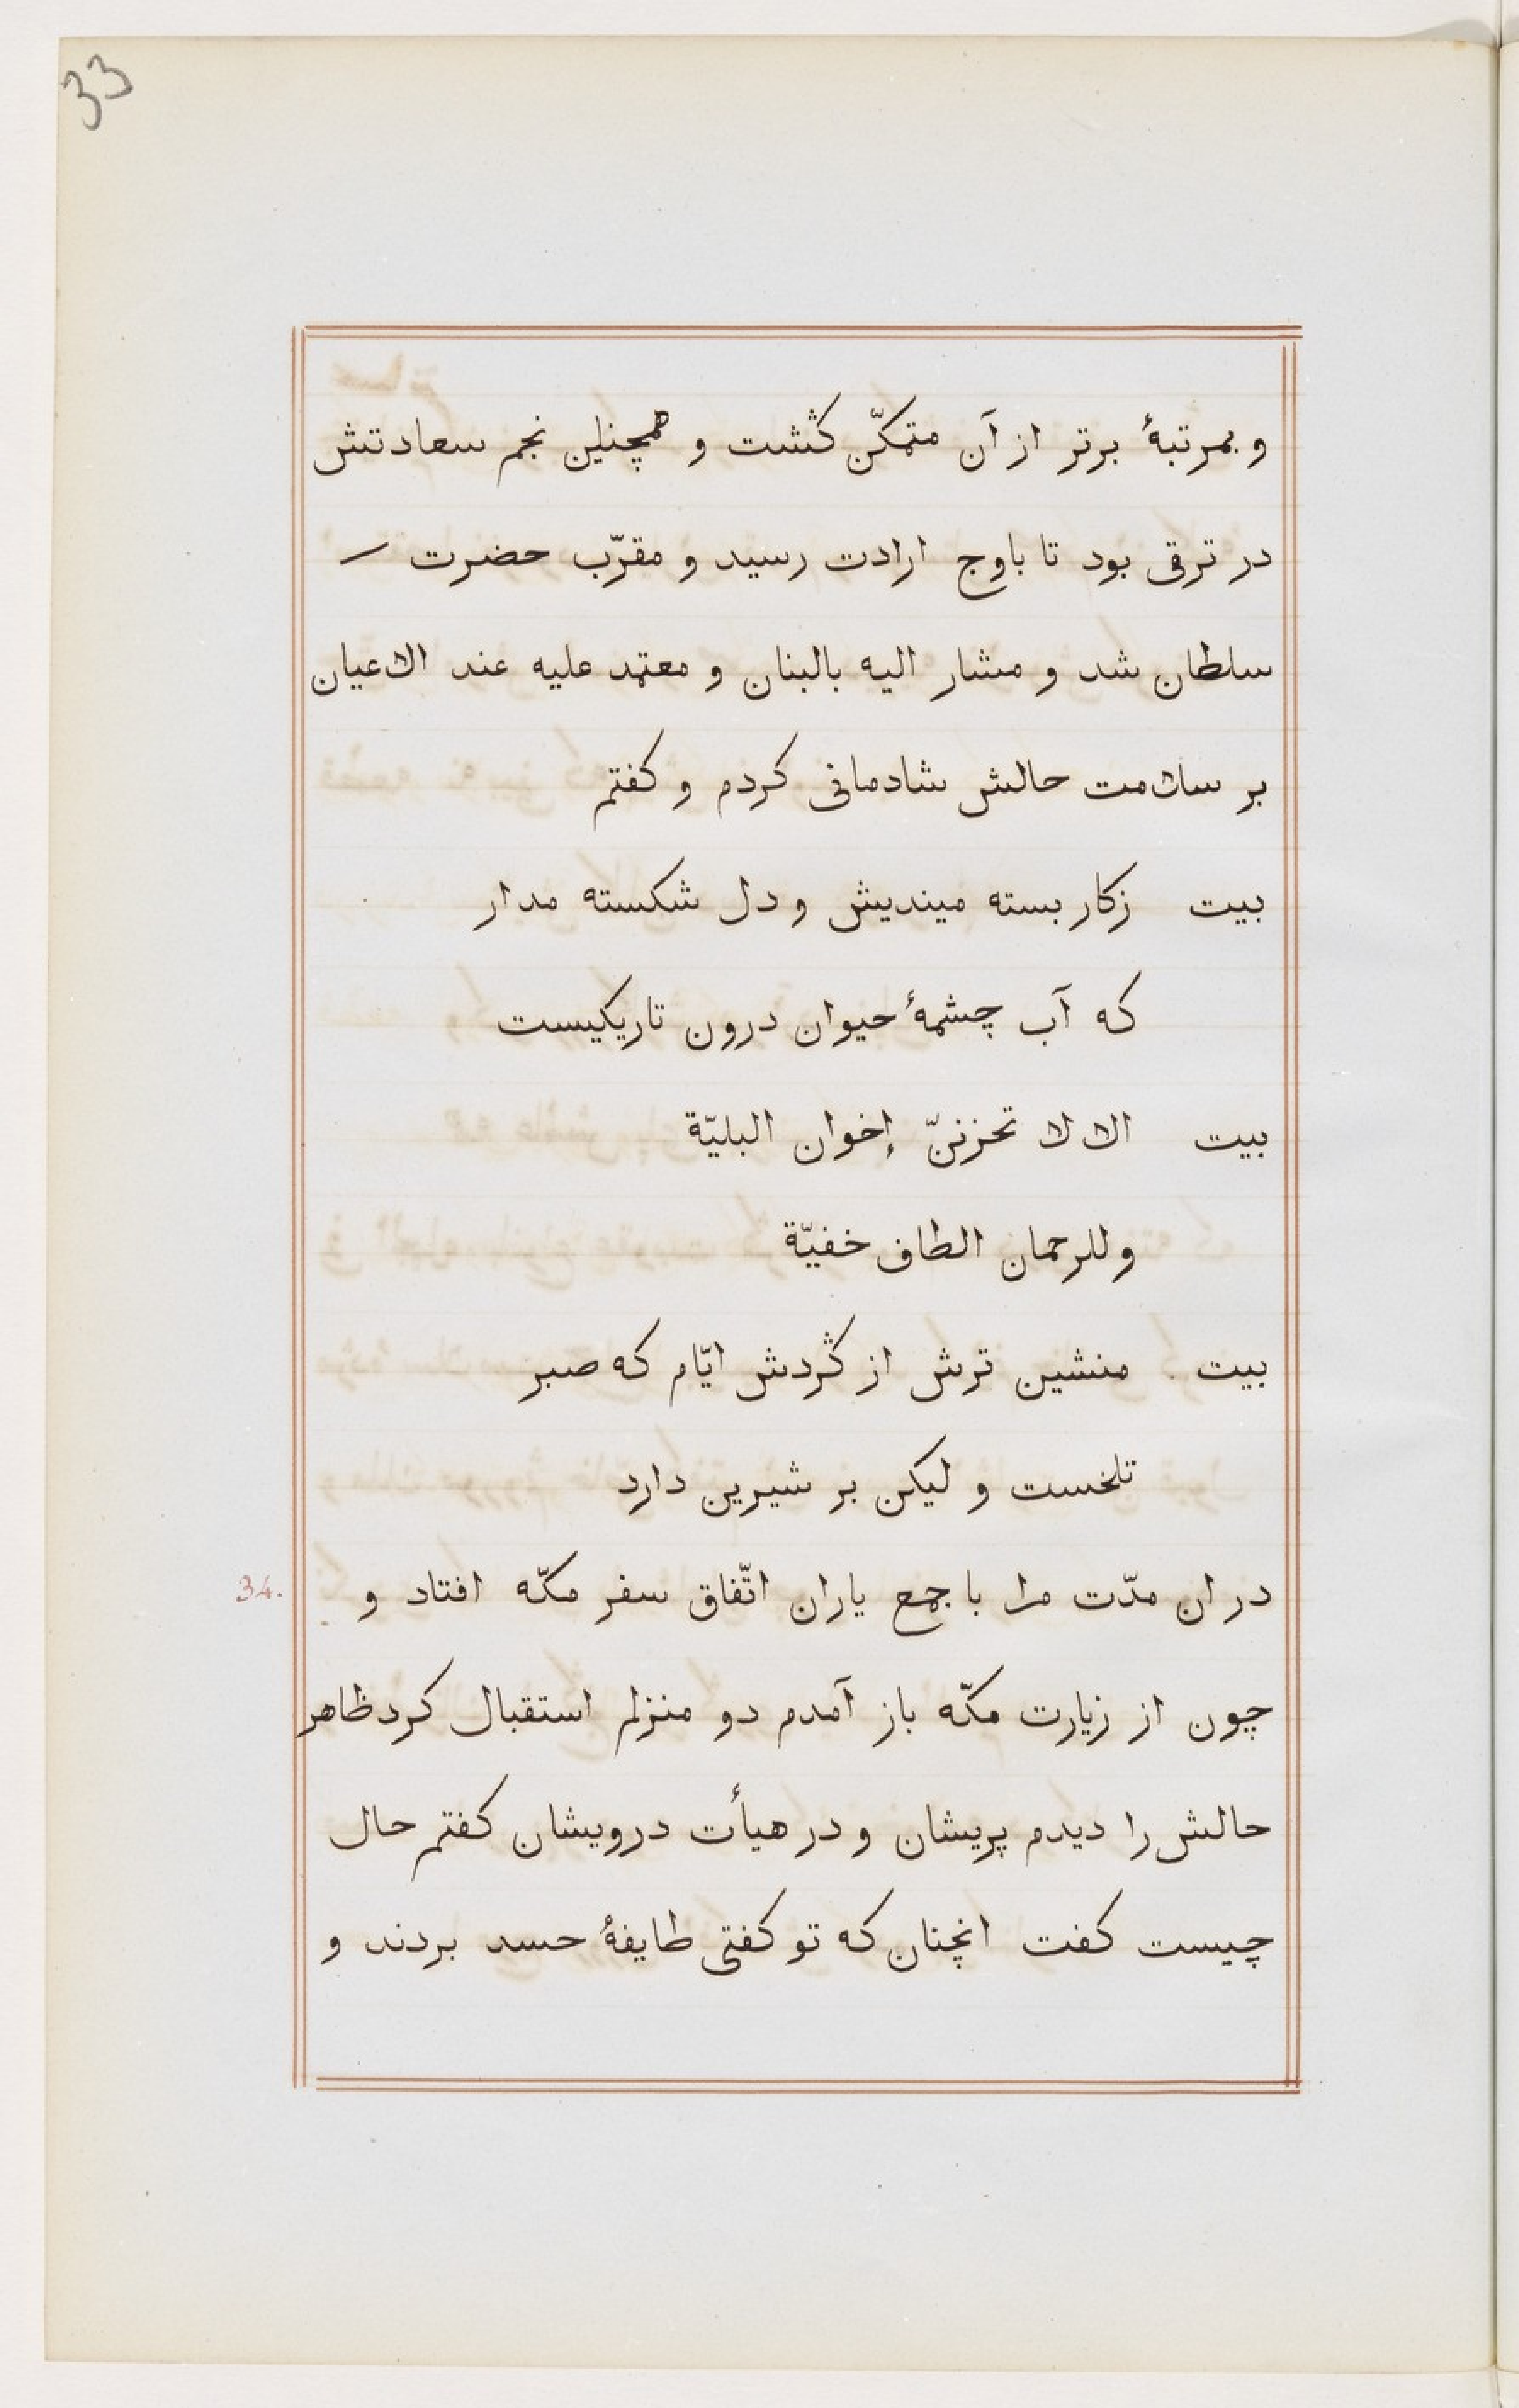 33
و بمرتبهٔ برتر از آن متمکّن کثشت و همچنلین نجم سعادتش
در ترقی بود تا باوج ارادت رسید و مقرّب حضرت
سلطان شد و مشار الیه بالبنان و معتمد علیه عند الاعیان
بر سلامت حالش شادمانی کردم و کفتم
بیت زکار بسته میندیش و دل شکسته مدار
که آب چشمهٔ حیوان درون تاریکیست
بیت الا لا تحزننّ إخوان البلیّة
وللرحمان الطاف خفیّة
بیت منشین ترش از کثردش ایّام که صبر
تلخست و لیکن بر شیرین دارد
در ان مدّت مرا با جمع یاران اتّفاق سفر مکّه افتاد و
34.
چون از زیارت مکّه باز آمدم دو منزلم استقبال کرد ظاهر
حالش را دیدم پریشان و در هیأت درویشان کفتم حال
چیست کفت انچنان که تو کفتی طایفهٔ حسد بردند و